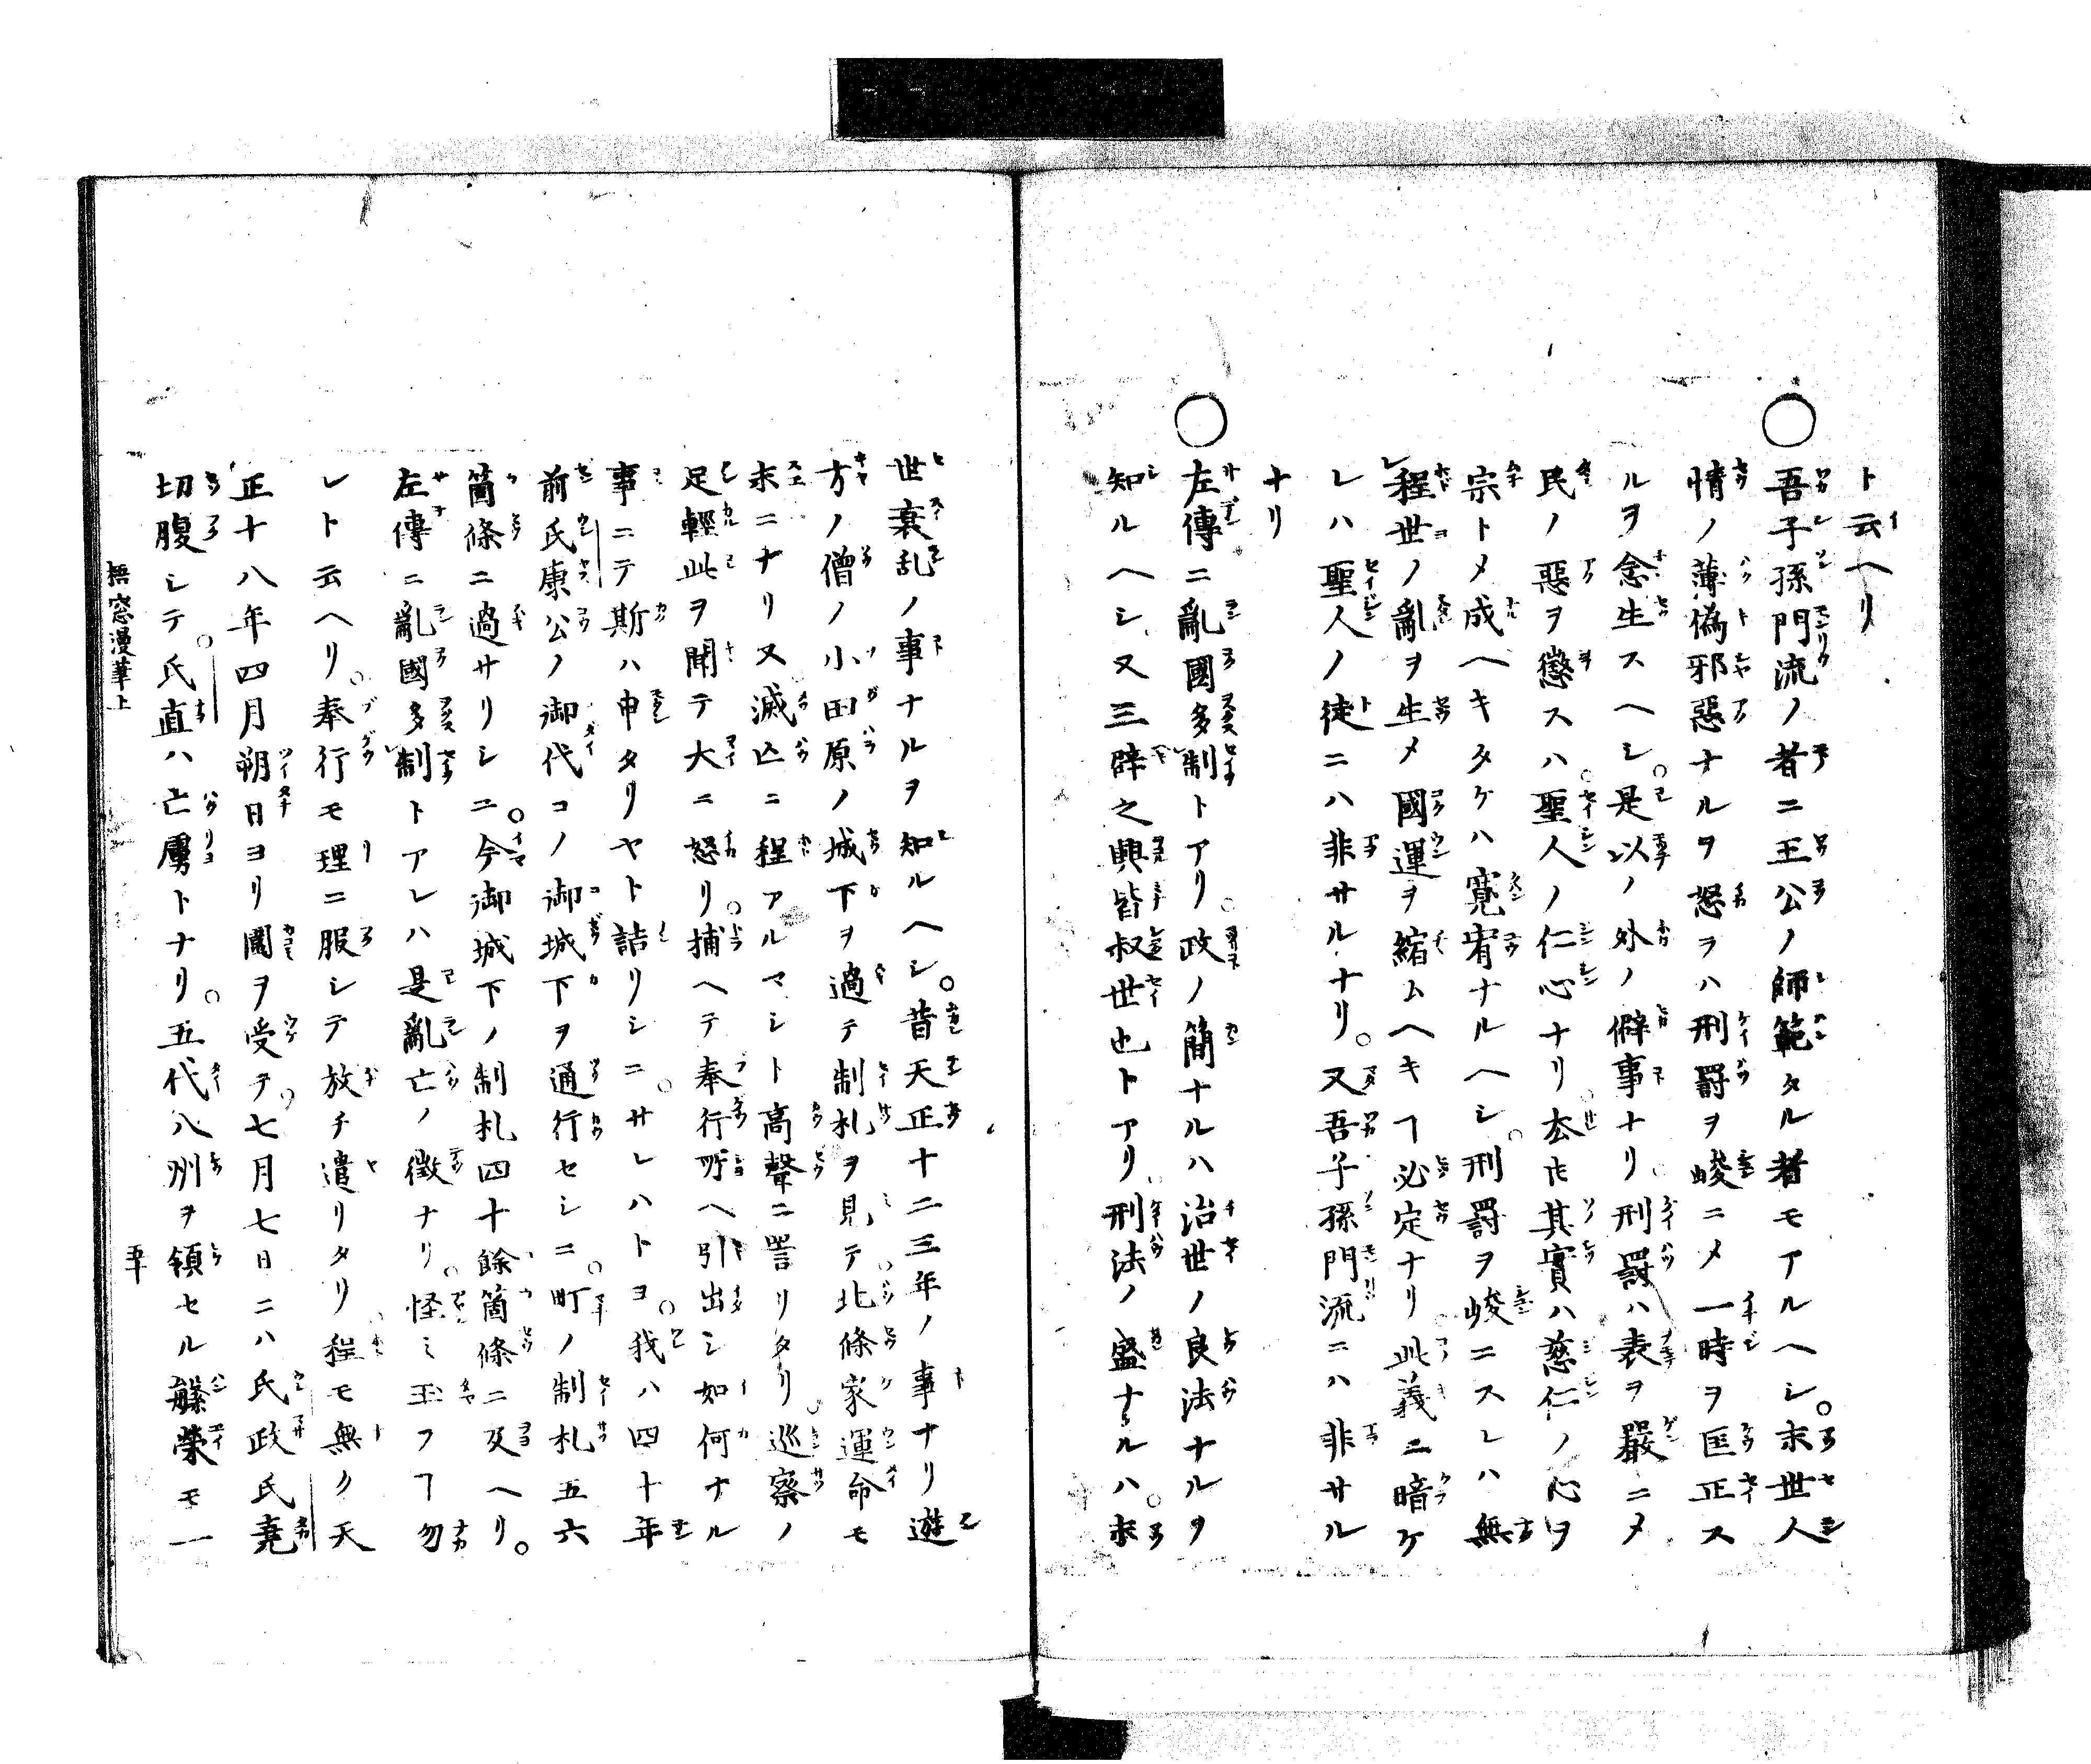 ト云ヘリ
○吾子孫門流ノ者ニ王公ノ師範タル者モアルヘシ。末世人
情ノ薄偽邪惡ナルヲ怒ヲハ刑罰ヲ峻ニメ一時ヲ匡正ス
ルヲ念生スヘシ。是以ノ外ノ僻事ナリ。刑罰ハ表ヲ嚴ニメ
民ノ惡ヲ懲スハ。聖人ノ仁心ナリ。去𪜈其實ハ慈仁ノ心ヲ
宗トメ成ヘキタケハ寛宥ナルヘシ。刑罰ヲ峻ニスレハ無
程世ノ亂ヲ生メ國運ヲ縮ムヘキヿ必定ナリ。此義ニ暗ケ
レハ聖人ノ徒ニハ非サルナリ。又吾子孫門流ニハ非サル
ナリ
○左傳ニ亂國多制トアリ。政ノ簡ナルハ治世ノ良法ナルヲ
知ルヘシ又三辟之興皆叔世也トアリ。刑法ノ盛ナルハ。末
世衰乱ノ事ナルヲ知ルヘシ。昔天正十二三年ノ事ナリ遊
方ノ僧ノ小田原ノ城下ヲ過テ制札ヲ見テ。北條家運命モ
末ニナリ又滅亡ニ程アルマシト高聲ニ詈リタリ。巡察ノ
足輕此ヲ聞テ大ニ怒リ。捕ヘテ奉行所ヘ引出シ如何ナル
事ニテ斯ハ申タリヤト詰リシニ。サレハトヨ。我ハ四十年
前氏康公ノ御代コノ御城下ヲ通行セシニ。町ノ制札五六
箇條ニ過サリシニ。今御城下ノ制札四十餘箇條ニ及ヘリ。
左傳ニ亂國多制トアレハ是亂亡ノ徴ナリ。怪ミ玉フヿ勿
レト云ヘリ。奉行モ理ニ服シテ放チ遣リタリ。程モ無ク天
正十八年四月朔日ヨリ圍ヲ受ケ。七月七日ニハ氏政氏堯
切腹シテ。氏直ハ亡虜トナリ。五代八州ヲ領セル繁榮モ一
梧窓漫筆上
五十